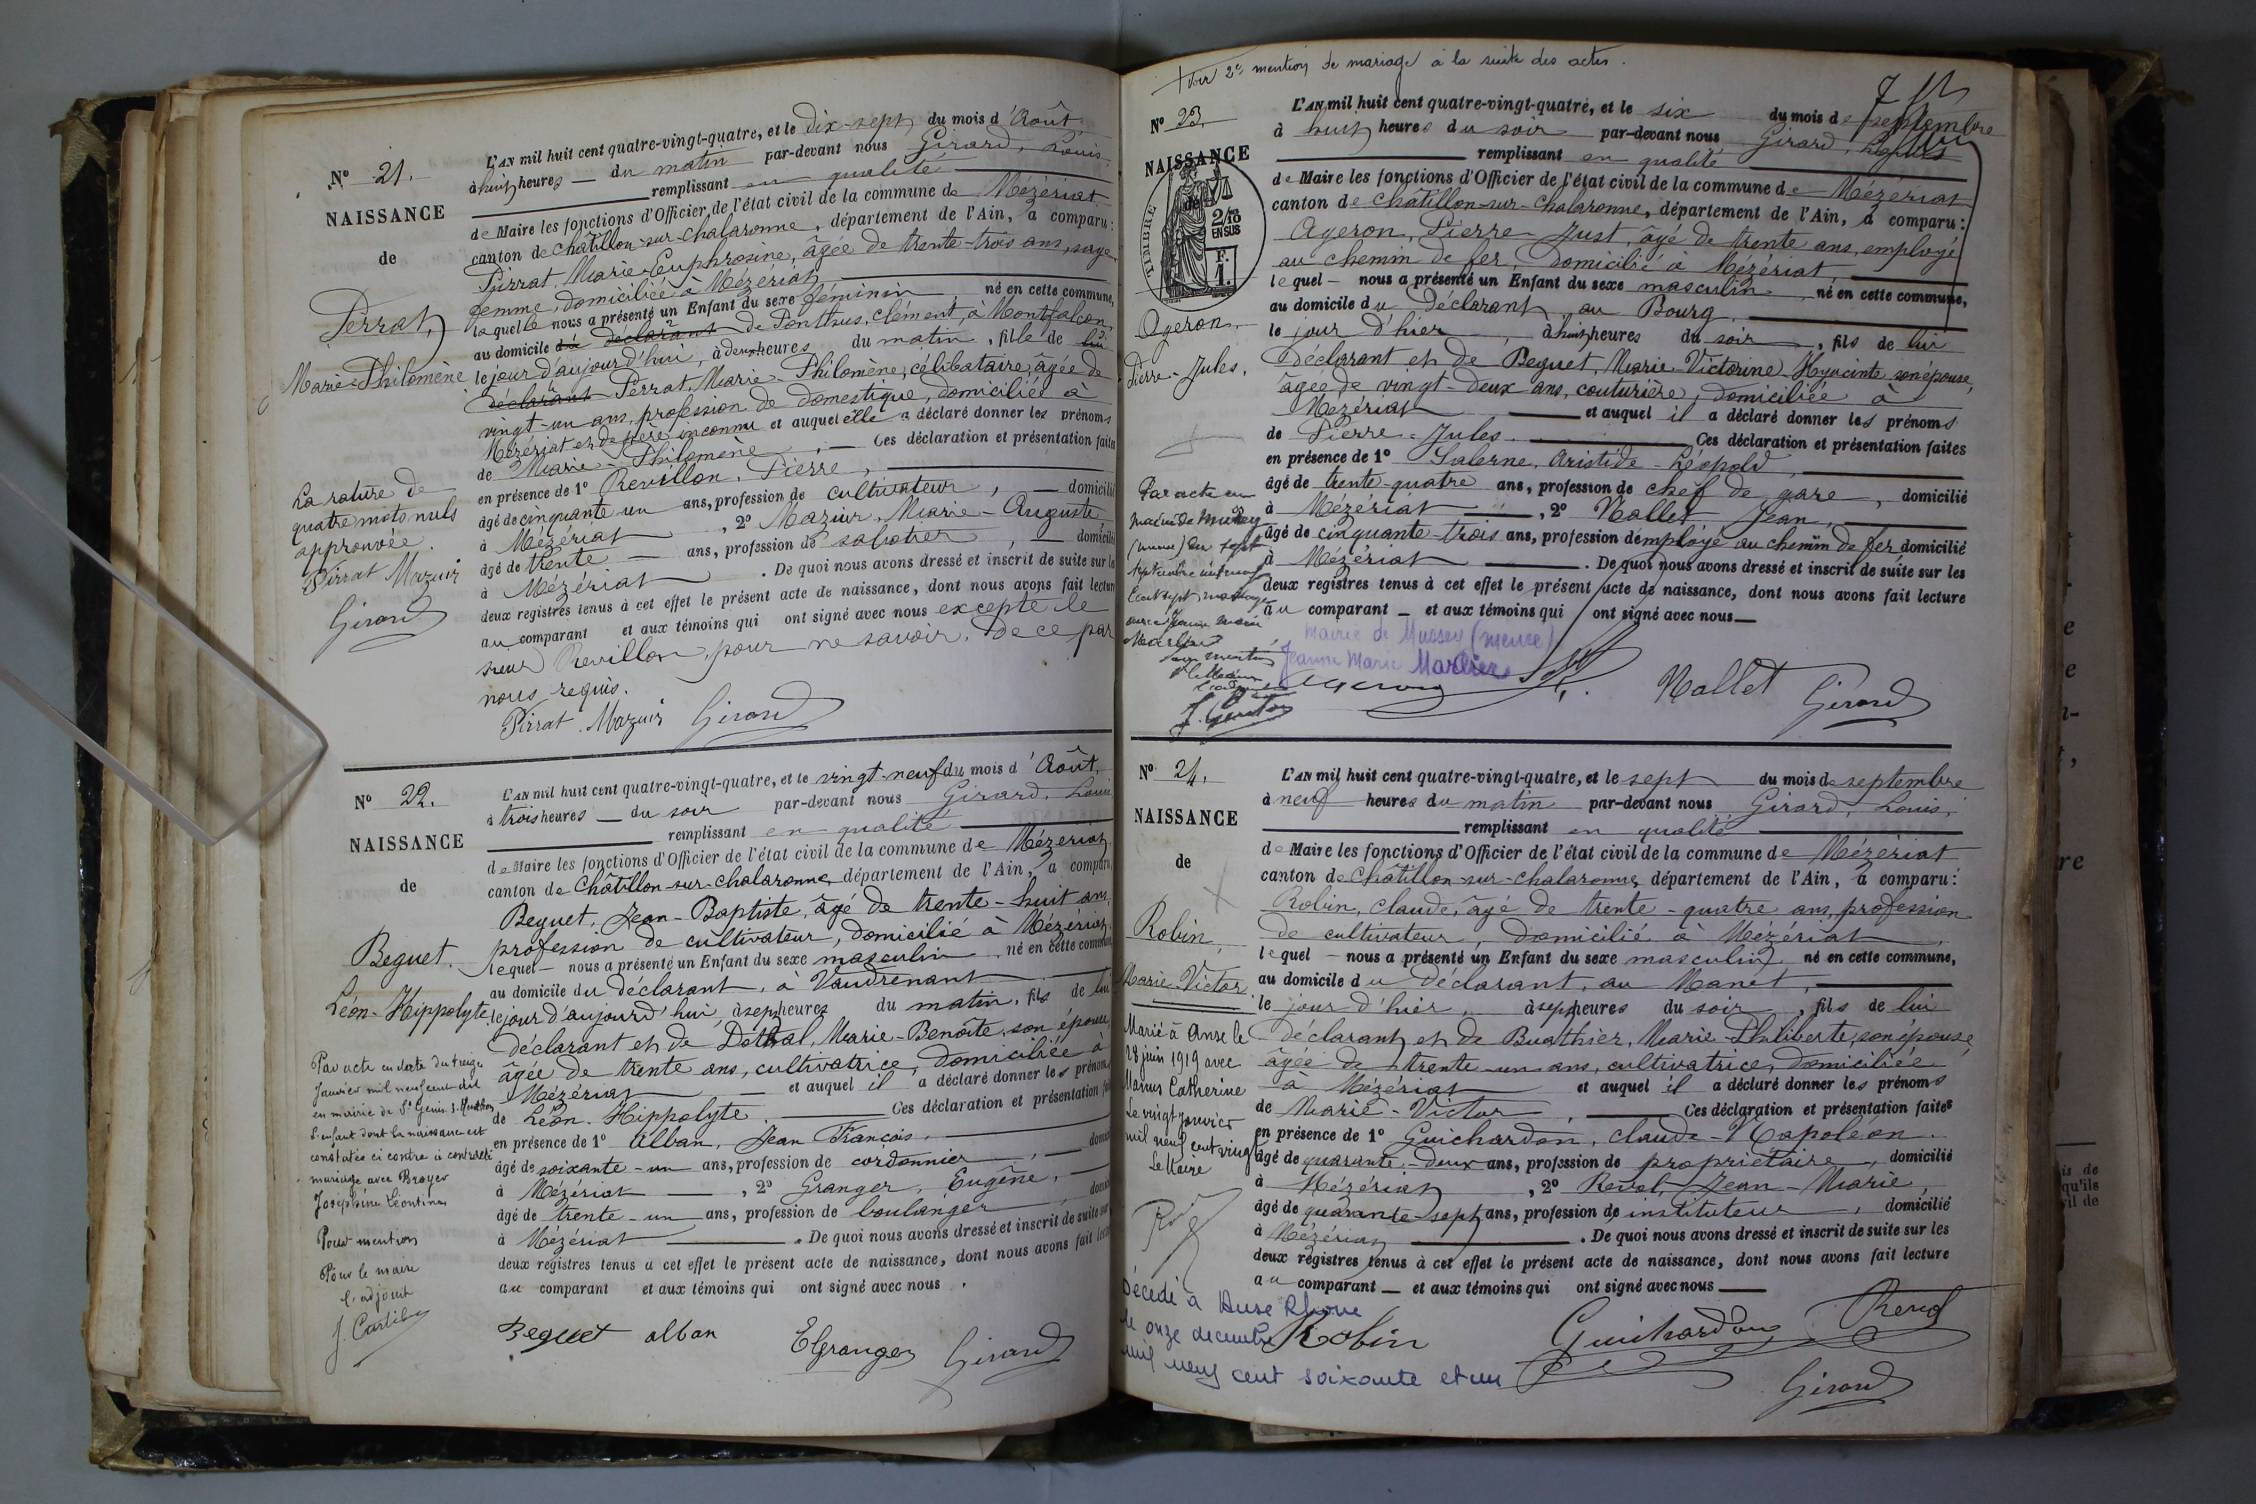 N° 21.
NAISSANCE
de
Perrat,
Marie-Philomène
La rature de
quatre mots nuls
approuvée.
Pirrat Mazuir
Girard
L'AN mil huit cent quatre-vingt-quatre, et le dix-sept du mois d'Août
à huit heures — du matin par-devant nous Girard, Louis,
remplissant en qualité
de Maire les fonctions d'Officier de l'état civil de la commune de Mézériat
canton de Châtillon-sur-Chalaronne, département de l'Ain, a comparu :
Pirrat, Marie-Euphrosine, âgée de trente-trois ans, sage
femme, domiciliée à Mézériat
laquelle nous a présenté un Enfant du sexe féminin, né en cette commune,
au domicile du déclarant de Ponthus, Clément, à Montfalcon,
le jour d'aujourd'hui, à deux heures du matin, fille de lui
déclarant Perrat, Marie-Philomène, célibataire, âgée de
vingt-un ans, profession de domestique, domiciliée à
Mézériat et de père inconnu et auquel elle a déclaré donner les prénoms
de Marie-Philomène, — Ces déclaration et présentation faites
en présence de 1° Revillon, Pierre,
âgé de cinquante un ans, profession de cultivateur, — domicilié
à Mézériat, 2° Mazuir, Marie-Auguste
âgé de trente — ans, profession de sabotier, — domicilié
à Mézériat. De quoi nous avons dressé et inscrit de suite sur les
deux registres tenus à cet effet le présent acte de naissance, dont nous avons fait lecture
au comparant et aux témoins qui ont signé avec nous excepté le
sieur Revillon, pour ne savoir, de ce par
nous requis.
Pirrat . Mazuir Girard
N° 22.
NAISSANCE
de
Beguet.
Léon-Hippolyte.
Par acte en date du treize
Janvier mil neuf cent dix
en mairie de St Genis s. Menthon
l'enfant dont la naissance est
constatée ci contre a contracté
mariage avec Broyer
Joséphine Léontine
Pour mention
Pour le maire
l'adjoint
L'AN mil huit cent quatre-vingt-quatre, et le vingt-neuf du mois d'Août,
à trois heures — du soir par-devant nous Girard, Louis
remplissant en qualité
de Maire les fonctions d'Officier de l'état civil de la commune de Mézériat
canton de Châtillon-sur-Chalaronne, département de l'Ain, a comparu
Beguet, Jean-Baptiste, âgé de trente-huit ans,
profession de cultivateur, domicilié à Mézériat,
lequel — nous a présenté un Enfant du sexe masculin, né en cette commune
au domicile du déclarant, à Vaudrenant
le jour d'aujourd'hui, à sept heures du matin, fils de lui
déclarant et de Marie-Benoîte, son épouse,
âgée de trente ans, cultivatrice, domiciliée à
Mézériat — et auquel il a déclaré donner les prénoms
de Léon-Hippolyte. Ces déclaration et présentation faites
en présence de 1° Alban, Jean François,
âgé de soixante-un ans, profession de cordonnier, — domicilié
à Mézériat —, 2° Granger, Eugène,
âgé de trente-un ans, profession de boulanger, domicilié
à Mézériat. De quoi nous avons dressé et inscrit de suite sur
deux registres tenus à cet effet le présent acte de naissance, dont nous avons fait lecture
au comparant et aux témoins qui ont signé avec nous .
Beguet alban EGranger Girard
Voir 2e mention de mariage à la suite des actes.
N° 23.
NAISSANCE
de
TIMBRE
2/10
EN SUS
F.
1.
Ageron,
Pierre-Jules.
Par acte en
mairie de Mussey
(meuse) du sept
L'AN mil huit cent quatre-vingt-quatre, et le six du mois de septembre
à huit heures du soir par-devant nous Girard, Louis
remplissant en qualité
de Maire les fonctions d'Officier de l'état civil de la commune de Mézériat
canton de Châtillon-sur-Chalaronne, département de l'Ain, a comparu :
Ageron, Pierre-Just, âgé de trente ans, employé
au chemin de fer, domicilié à Mézériat,
lequel — nous a présenté un Enfant du sexe masculin, né en cette commune,
au domicile du déclarant, au Bourg,
le jour d'hier, à huit heures du soir, fils de lui
déclarant et de Beguet, Marie-Victorine-Hyacinte, son épouse,
âgée de vingt-deux ans, couturière, domiciliée à
Mézériat — et auquel il a déclaré donner les prénoms
de Pierre-Jules. Ces déclaration et présentation faites
en présence de 1° Salerne, Aristide-Léopold,
âgé de trente-quatre ans, profession de chef de gare, domicilié
à Mézériat —, 2° Nallet Jean,
âgé de cinquante-trois ans, profession d'employé au chemin de fer domicilié
à Mézériat. De quoi nous avons dressé et inscrit de suite sur les
deux registres tenus à cet effet le présent acte de naissance, dont nous avons fait lecture
au comparant — et aux témoins qui ont signé avec nous —
mairie de Mussey (meuse)
Jeanne Marie Marlier
Ageron Nallet Girard
N° 24.
NAISSANCE
de
Robin,
Marie-Victor.
Marié à Anse le
28 juin 1919 avec
Catherine
Le vingt janvier
mil neuf cent vingt
Le Maire
Décédé à Anse Rhône
le onze decembre
mil neuf cent soixante et un
L'AN mil huit cent quatre-vingt-quatre, et le sept du mois de septembre
à neuf heures du matin par-devant nous Girard, Louis,
remplissant en qualité
de Maire les fonctions d'Officier de l'état civil de la commune de Mézériat
canton de Châtillon-sur-Chalaronne, département de l'Ain, a comparu :
Robin, Claude, âgé de trente-quatre ans, profession
de cultivateur, domicilié à Mézériat,
lequel — nous a présenté un Enfant du sexe masculin né en cette commune,
au domicile du déclarant, au Manet,
le jour d'hier, à sept heures du soir, fils de lui
déclarant et de Buathier, Marie-Philiberte, son épouse,
âgée de trente-un ans, cultivatrice, domiciliée
à Mézériat et auquel il a déclaré donner les prénoms
de Marie-Victor, — Ces déclaration et présentation faites
en présence de 1° Guichardon, Claude-Napoléon.
âgé de quarante-deux ans, profession de propriétaire, domicilié
à Mézériat, 2° Revol, Jean-Marie,
âgé de quarante-sept ans, profession de instituteur, domicilié
à Mézériat. De quoi nous avons dressé et inscrit de suite sur les
deux registres tenus à cet effet le présent acte de naissance, dont nous avons fait lecture
au comparant — et aux témoins qui ont signé avec nous —
Robin Guichardon Revol
Girard